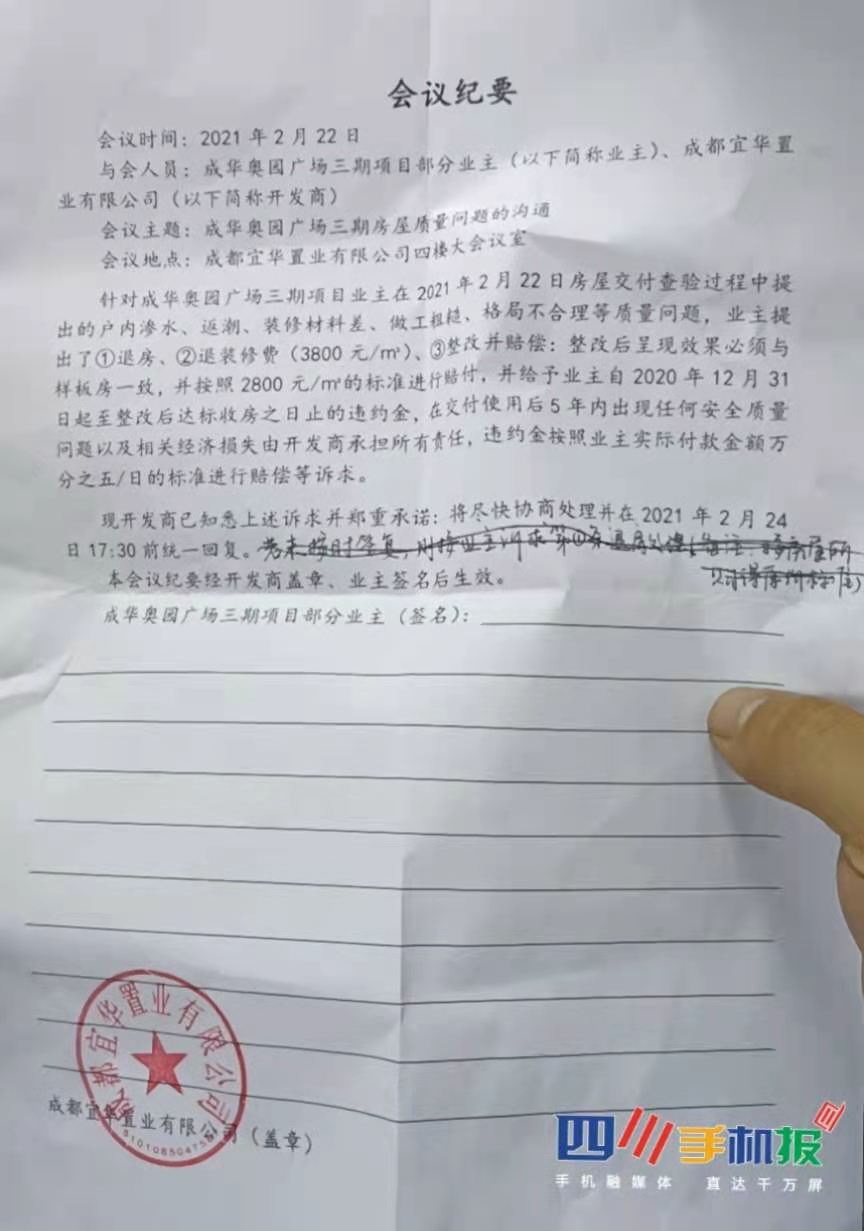 会议纪要
会议时间：2021年2月22日
与会人员：成华奥园广场三期项目部分业主（以下简称业主）、成都宜华置
业有限公司（以下简称开发商）
会议主题：成华奥园广场三期房屋质量问题的沟通
会议地点：成都宜华置业有限公司四楼大会议室
针对成华奥园广场三期项目业主在2021年2月22日房屋交付查验过程中提
出的户内渗水、返潮、装修材料差、做工粗糙、格局不合理等质量问题，业主提
出了①退房、②退装修费（3800元/㎡）、③整改并赔偿：整改后呈现效果必须与
样板房一致，并按照2800元/㎡的标准进行赔付，并给予业主自2020年12月31
日起至整改后达标收房之日止的违约金，在交付使用后5年内出现任何安全质量
问题以及相关经济损失由开发商承担所有责任，违约金按照业主实际付款金额万
分之五/日的标准进行赔偿等诉求。
现开发商已知悉上述诉求并郑重承诺：将尽快协商处理并在2021年2月24
日17:30前统一回复。若未按时答复，则按业主诉求第
本会议纪要经开发商盖章、业主签名后生效。
成华奥园广场三期项目部分业主（签名）：
成都宜华置业有限公司
成都宜华置业有限公司（盖章）
四川手机报
手机融媒体 直达千万屏